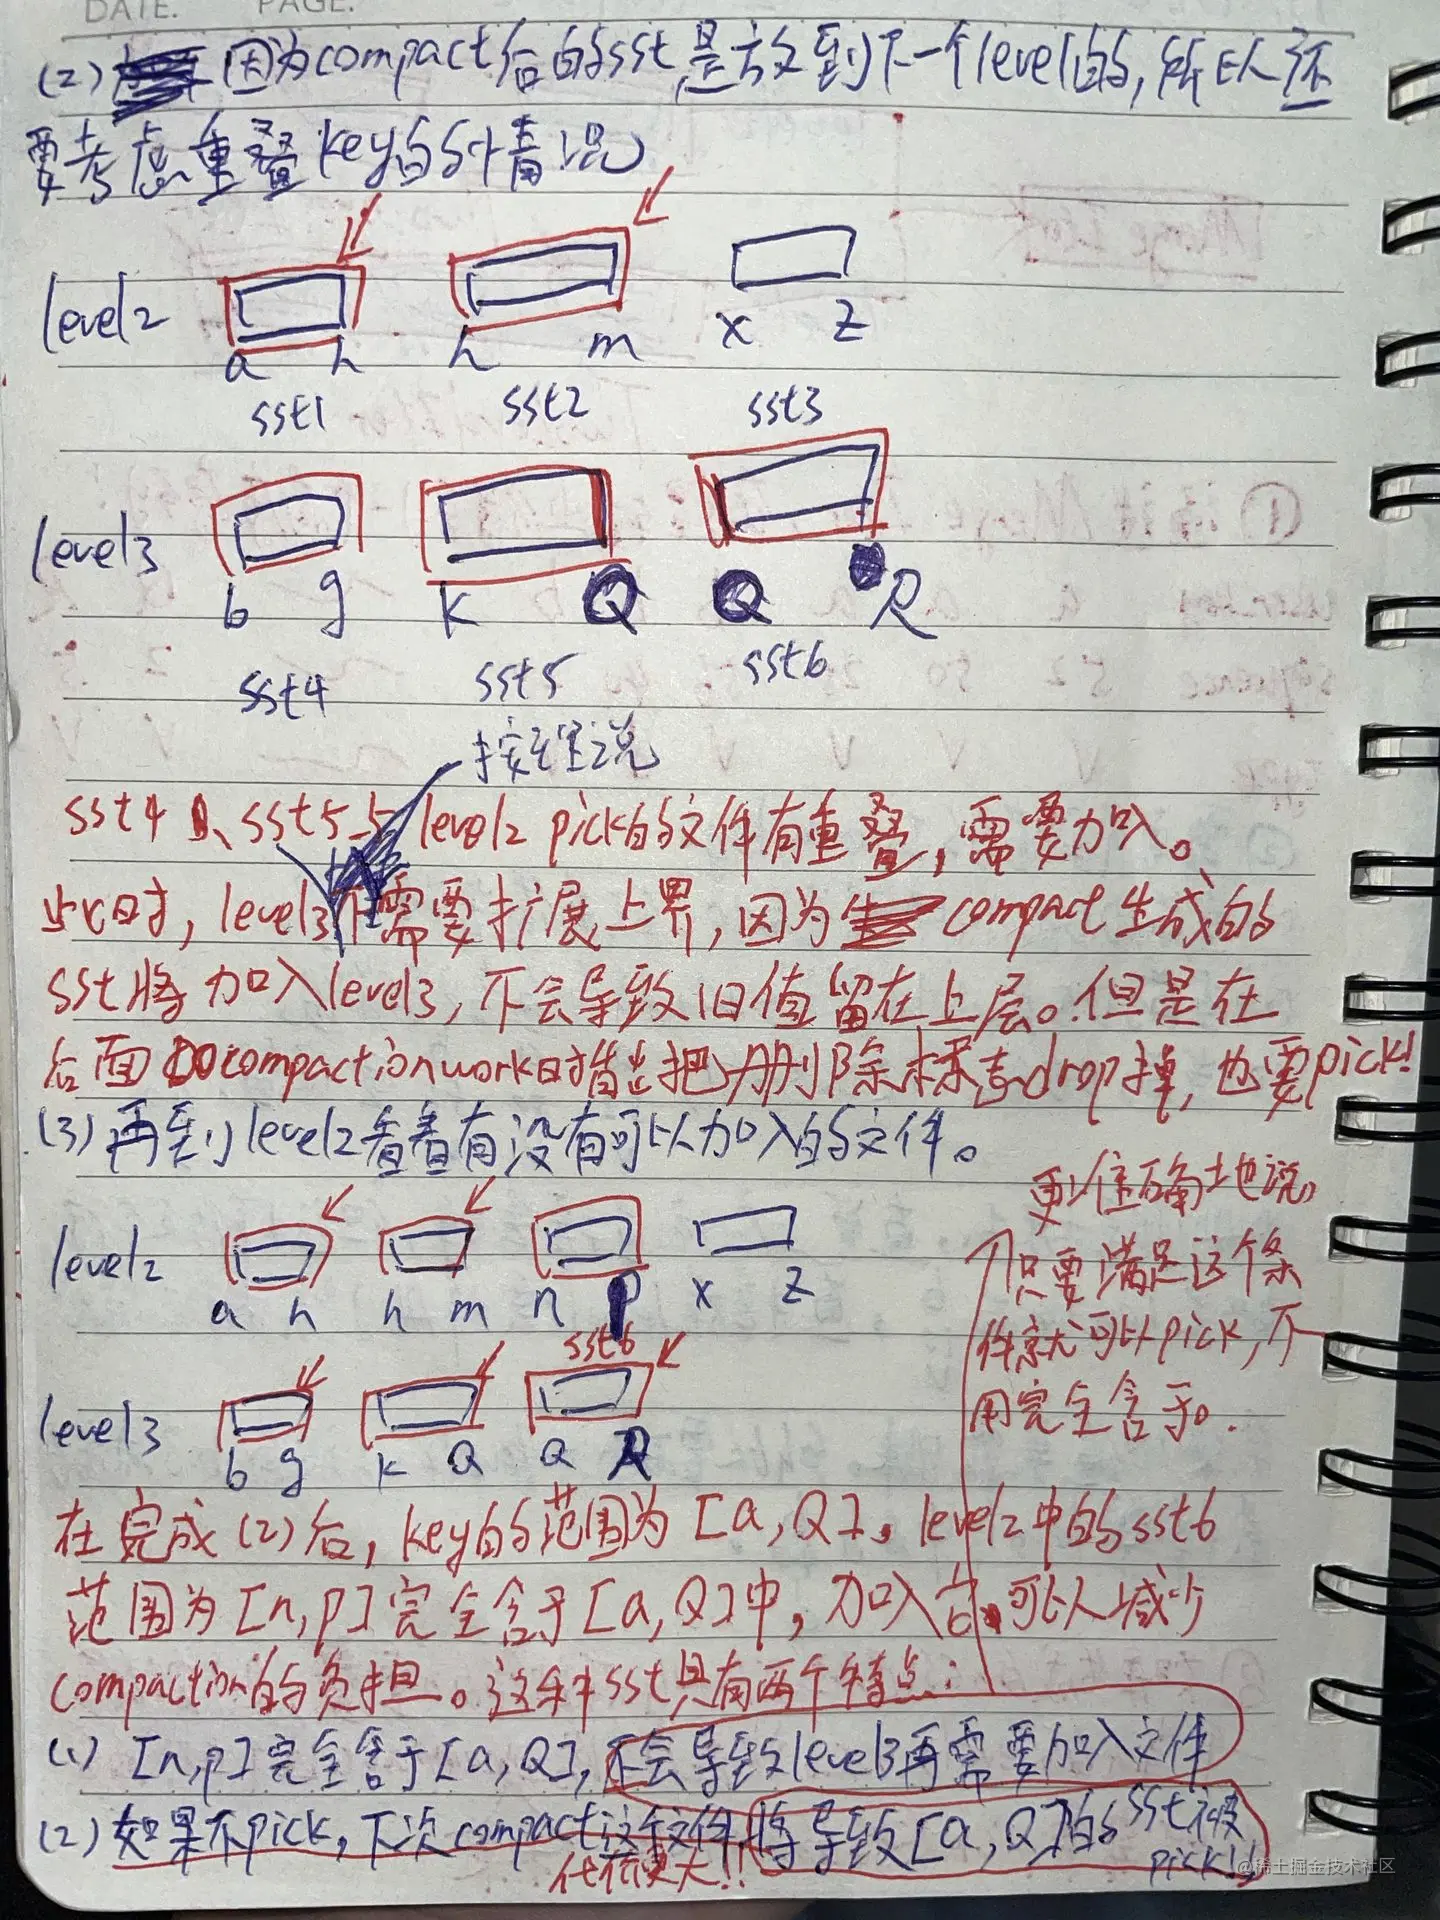 DATE. PAGE.
(2) 因为compact后的sst,是放到下一个level的,所以还
要考虑重叠key的情况
level2
a h h m x z
sst1 sst2 sst3
level3
b g k Q Q R
sst4 sst5 sst6
按理说
sst4、sst5与level2 pick的文件有重叠,需要加入。
此时,level3不需要扩展上界,因为compact生成的
sst将加入level3,不会导致旧值留在上层。但是在
后面DOcompactionwork时描述把删除标志drop掉,也要pick!
(3) 再到level2看看有没有可以加入的文件。
更准确地说。
只要满足这个条
件就可以pick,不
用完全含于。
level2
a h h m n p x z
sst6
level3
b g k Q Q R
在完成(2)后,key的范围为[a,Q]。level2中的sst6
范围为[n,p]完全含于[a,Q]中,加入它可以减少
compaction的负担。这种sst具有两个特点:
(1) [n,p]完全含于[a,Q],不会导致level3再需要加入文件
(2) 如果不pick,下次compact这个文件,将导致[a,Q]的sst被
pick!!
代价更大!!
@稀土掘金技术社区